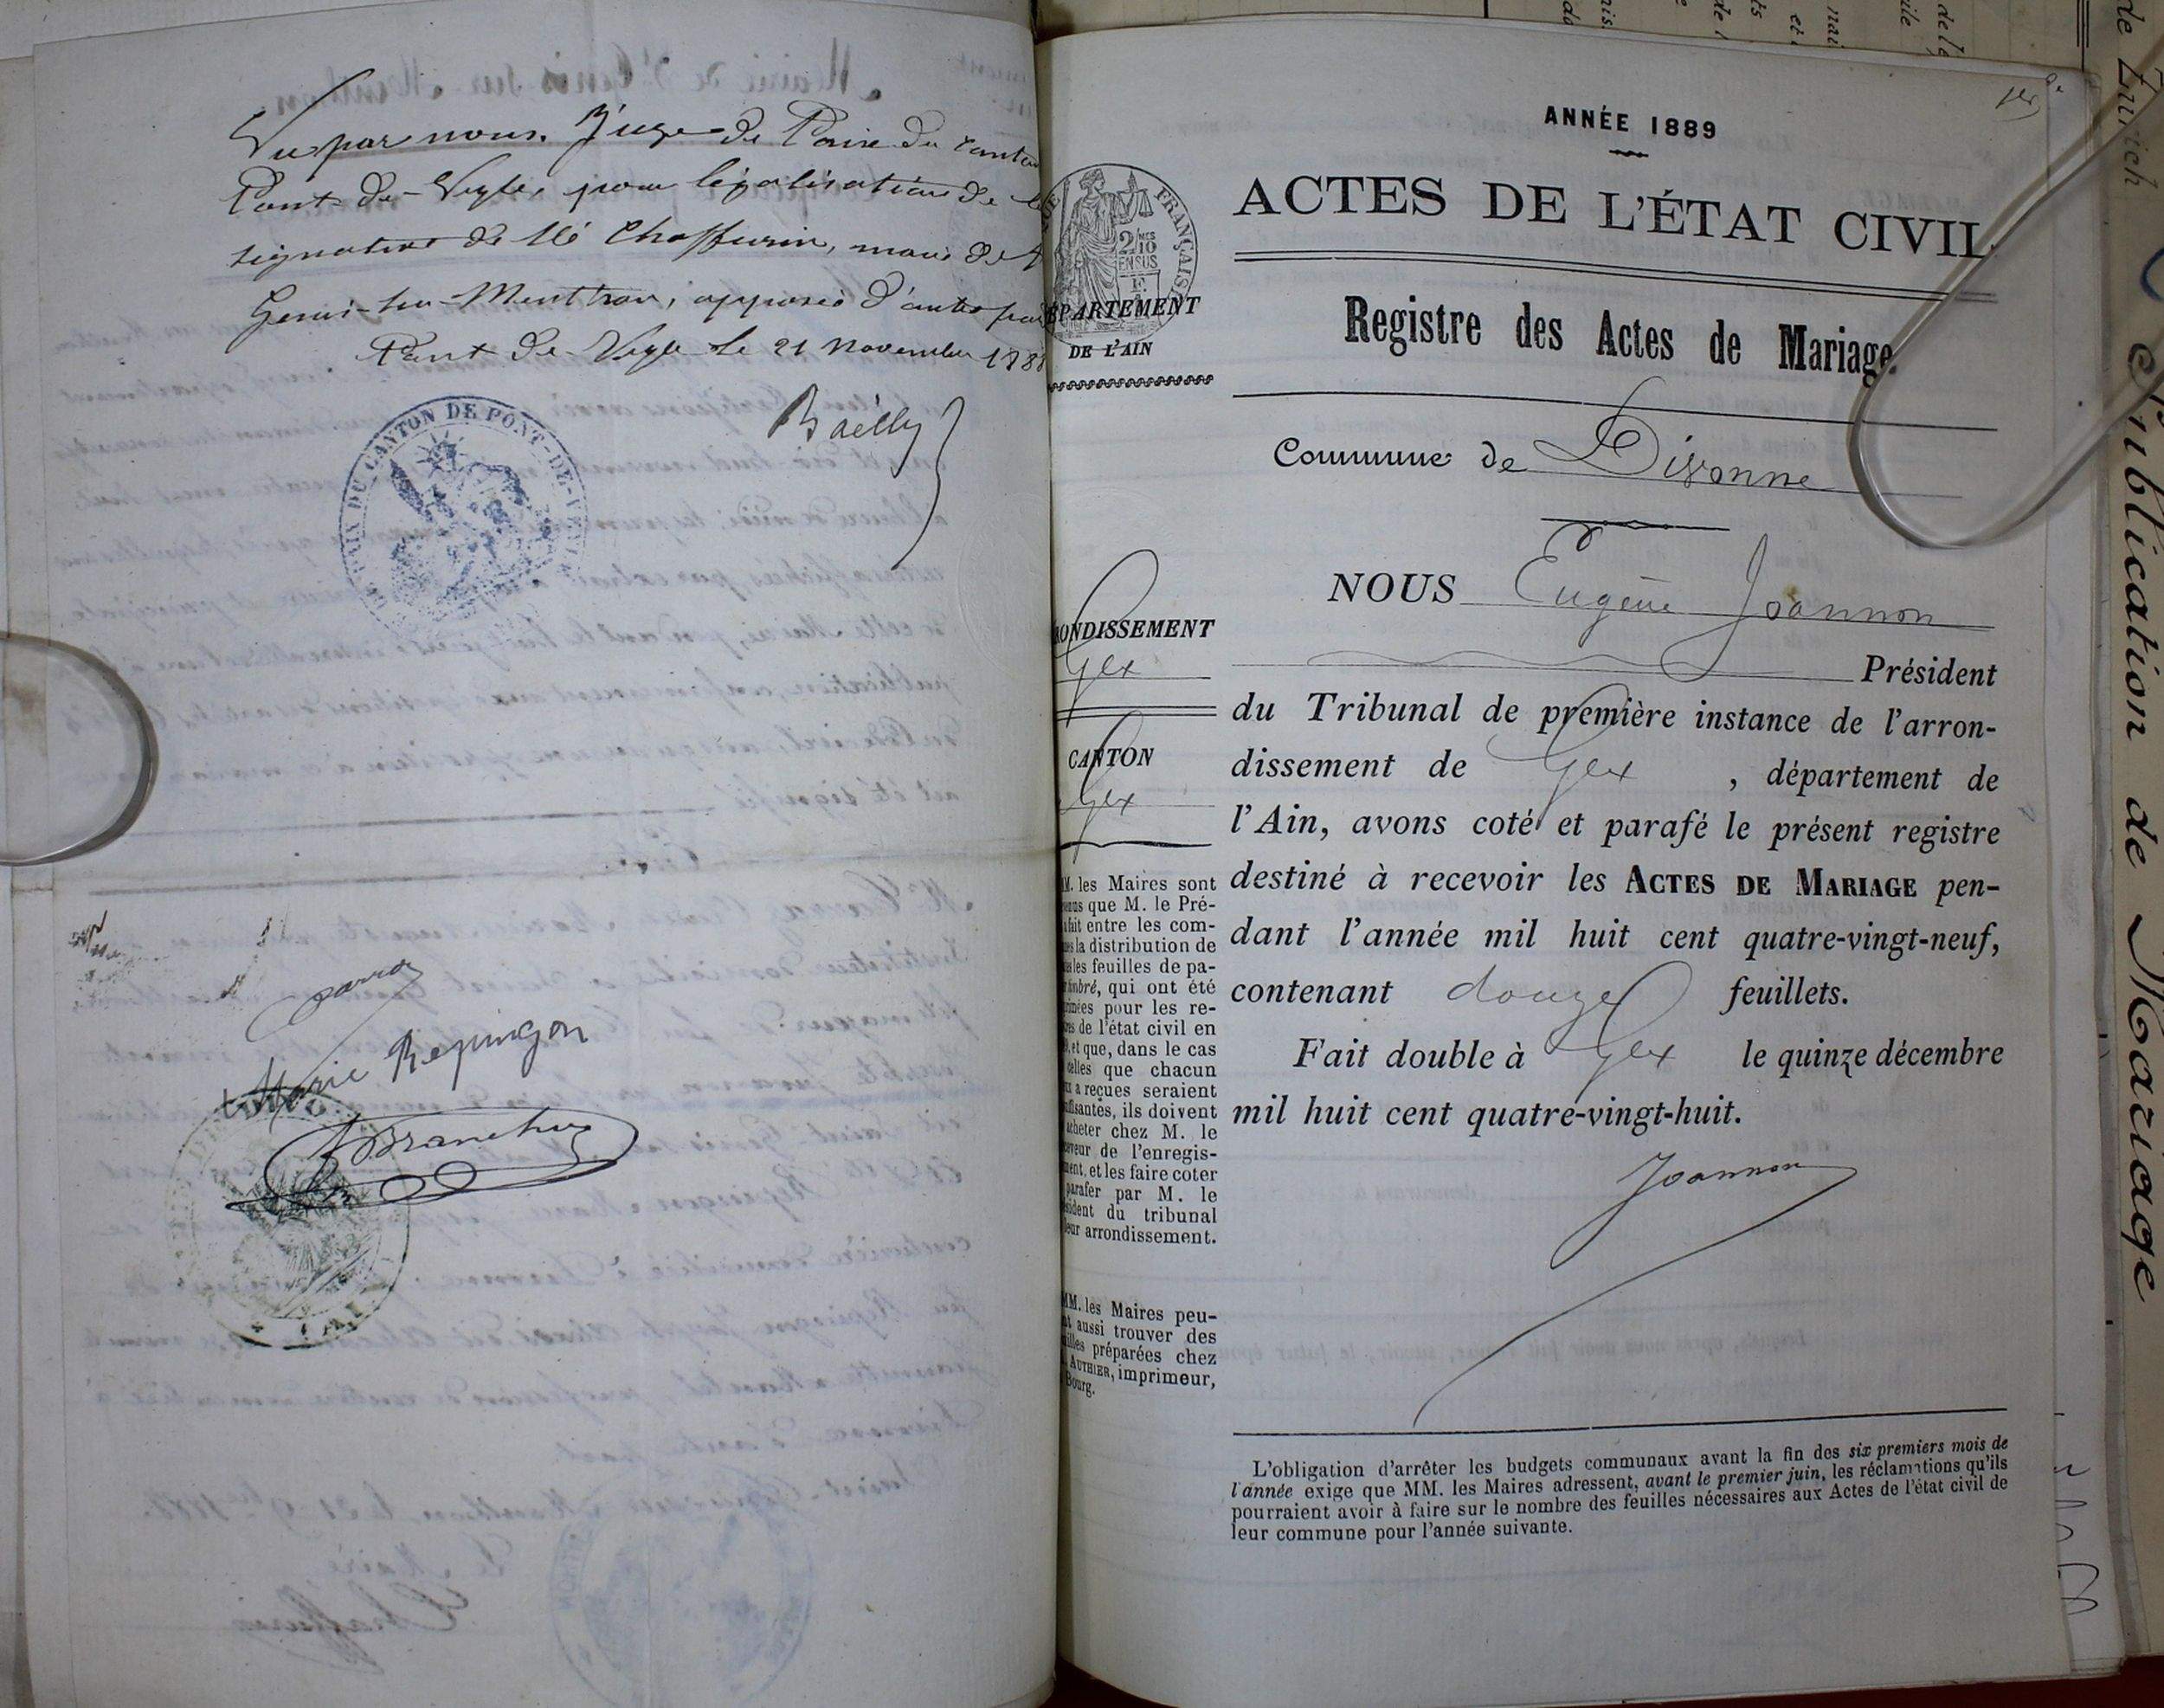 Vu par nous, Juge de Paix du canton
Pont-de-Veyle, pour légalisation de la
signature de Mr Chaffurin, maire de St
Genis-sur-Menthon, apposée d'autre part
Pont-de-Veyle le 21 novembre 188
Bailly
DU CANTON DE PONT-DE-VEYLE
Marie Repingon
ANNÉE 1889
1er
ACTES DE L'ÉTAT CIVIL
FRANÇAISE
2/10
EN SUS
DÉPARTEMENT
DE L'AIN
Registre des Actes de Mariage.
Commune de Divonne
NOUS Eugène Joannon
Président
du Tribunal de première instance de l'arron-
dissement de Gex , département de
l'Ain, avons coté et parafé le présent registre
destiné à recevoir les ACTES DE MARIAGE pen-
dant l'année mil huit cent quatre-vingt-neuf,
contenant douze feuillets.
Fait double à Gex le quinze décembre
mil huit cent quatre-vingt-huit.
Joannon
ONDISSEMENT
Gex
CANTON
Gex
MM. les Maires sont
venus que M. le Pré-
fait entre les com-
la distribution de
les feuilles de pa-
timbré, qui ont été
primées pour les re-
de l'état civil en
et que, dans le cas
celles que chacun
a reçues seraient
uffisantes, ils doivent
acheter chez M. le
ceveur de l'enregis-
ment, et les faire coter
parafer par M. le
sident du tribunal
leur arrondissement.
MM. les Maires peu-
nt aussi trouver des
uilles préparées chez
AUTHIER, imprimeur,
Bourg.
L'obligation d'arrêter les budgets communaux avant la fin des six premiers mois de
l'année exige que MM. les Maires adressent, avant le premier juin, les réclamations qu'ils
pourraient avoir à faire sur le nombre des feuilles nécessaires aux Actes de l'état civil de
leur commune pour l'année suivante.
de Zurich
Publication de Mariage